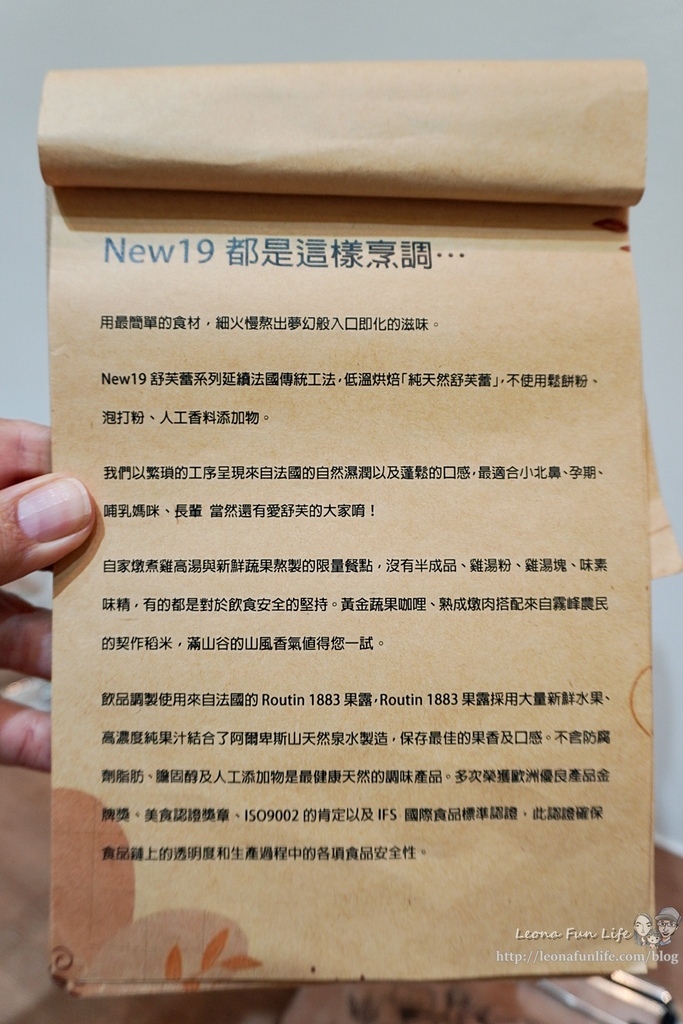 New19 都是這樣烹調…
用最簡單的食材，細火慢熬出夢幻般入口即化的滋味。
New19 舒芙蕾系列延續法國傳統工法，低溫烘焙「純天然舒芙蕾」，不使用鬆餅粉、
泡打粉、人工香料添加物。
我們以繁瑣的工序呈現來自法國的自然濕潤以及蓬鬆的口感，最適合小北鼻、孕期、
哺乳媽咪、長輩 當然還有愛舒芙的大家唷！
自家燉煮雞高湯與新鮮蔬果熬製的限量餐點，沒有半成品、雞湯粉、雞湯塊、味素
味精，有的都是對於飲食安全的堅持。黃金蔬果咖哩、熟成燉肉搭配來自霧峰農民
的契作稻米，滿山谷的山風香氣值得您一試。
飲品調製使用來自法國的 Routin 1883 果露，Routin 1883 果露採用大量新鮮水果、
高濃度純果汁結合了阿爾卑斯山天然泉水製造，保存最佳的果香及口感。不含防腐
劑脂肪、膽固醇及人工添加物是最健康天然的調味產品。多次榮獲歐洲優良產品金
牌獎、美食認證獎章、ISO9002 的肯定以及 IFS 國際食品標準認證，此認證確保
食品鏈上的透明度和生產過程中的各項食品安全性。
Leona Fun Life
http://leonafunlife.com/blog